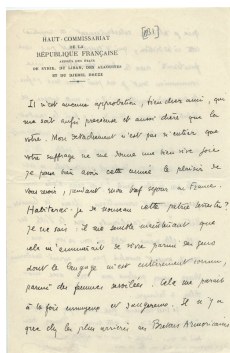 1931
HAUT-COMMISSARIAT
DE LA
RÉPUBLIQUE FRANÇAISE
AUPRÈS DES ÉTATS
DE SYRIE, DU LIBAN, DES ALAOUITES
ET DU DJEBEL DRUZE
Il n'est aucune approbation, bien cher ami, que
me soit aussi précieuse et aussi chère que la
votre. Mon détachement n'est pas si entier que
votre suffrage ne me donne une bien vive joie
je pense bien avoir cette année le plaisir de
vous revoir, pendant mon bref séjour en France.
Habiterai-je de nouveau cette petite
je ne sais, il me semble maintenant que
cela m'ennuierait de vivre parmi des gens
dont le langage m'est entièrement connu,
parmi des femmes dévoilées. Cela me paraît
à la fois ennuyeux et dangereux. Il n'y a
que chez les plus arriérés des Bretons Armoricains